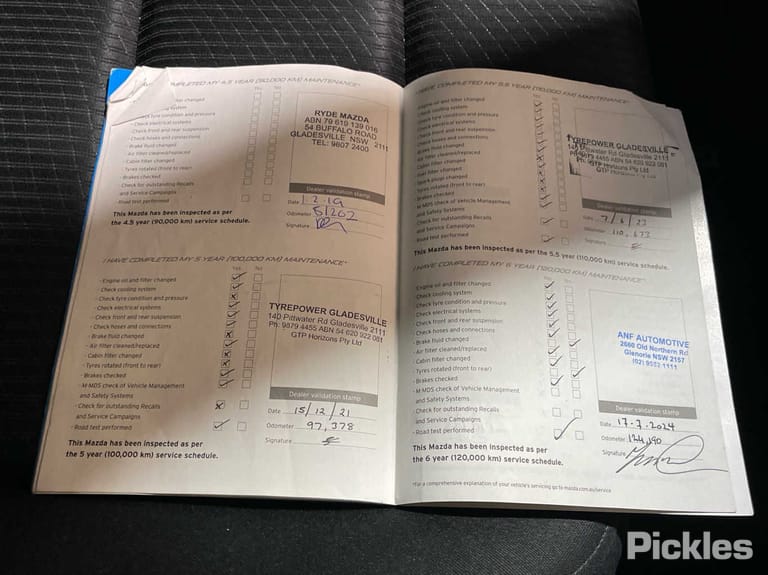 COMPLETED MY 4.5 YEAR (90,000 KM) MAINTENANCE*
Yes No
filter changed
cooling system
Check tyre condition and pressure
- Check electrical systems
- Check front and rear suspension
- Check hoses and connections
- Brake fluid changed
- Air filter cleaned/replaced
- Cabin filter changed
- Tyres rotated (front to rear)
- Brakes checked
- Check for outstanding Recalls
and Service Campaigns
- Road test performed
This Mazda has been inspected as per
the 4.5 year (90,000 km) service schedule.
RYDE MAZDA
ABN 79 619 139 016
54 BUFFALO ROAD
GLADESVILLE NSW 2111
TEL: 9807 2400
Dealer validation stamp
Date 1.2.19
Odometer 51202
Signature
I HAVE COMPLETED MY 5 YEAR (100,000 KM) MAINTENANCE*
Yes No
- Engine oil and filter changed
- Check cooling system
- Check tyre condition and pressure
- Check electrical systems
- Check front and rear suspension
- Check hoses and connections
- Brake fluid changed
- Air filter cleaned/replaced
- Cabin filter changed
- Tyres rotated (front to rear)
- Brakes checked
- M-MDS check of Vehicle Management
and Safety Systems
- Check for outstanding Recalls
and Service Campaigns
- Road test performed
This Mazda has been inspected as per
the 5 year (100,000 km) service schedule.
TYREPOWER GLADESVILLE
14D Pittwater Rd Gladesville 2111
Ph: 9879 4455 ABN 54 620 922 081
GTP Horizons Pty Ltd
Dealer validation stamp
Date 15/12/21
Odometer 97,378
Signature
I HAVE COMPLETED MY 5.5 YEAR (110,000 KM) MAINTENANCE*
Yes No
- Engine oil and filter changed
- Check cooling system
- Check tyre condition and pressure
- Check electrical systems
- Check front and rear suspension
- Check hoses and connections
- Brake fluid changed
- Air filter cleaned/replaced
- Cabin filter changed
- Fuel filter changed
- Spark plugs changed
- Tyres rotated (front to rear)
- Brakes checked
- M-MDS check of Vehicle Management
and Safety Systems
- Check for outstanding Recalls
and Service Campaigns
- Road test performed
This Mazda has been inspected as per the 5.5 year (110,000 km) service schedule.
TYREPOWER GLADESVILLE
14D Pittwater Rd Gladesville 2111
GTP Horizons Pty Ltd
Dealer validation stamp
Date 7/6/23
Odometer 110,673
Signature
I HAVE COMPLETED MY 6 YEAR (120,000 KM) MAINTENANCE*
Yes No
- Engine oil and filter changed
- Check cooling system
- Check tyre condition and pressure
- Check electrical systems
- Check front and rear suspension
- Check hoses and connections
- Brake fluid changed
- Air filter cleaned/replaced
- Cabin filter changed
- Tyres rotated (front to rear)
- Brakes checked
- M-MDS check of Vehicle Management
and Safety Systems
- Check for outstanding Recalls
and Service Campaigns
- Road test performed
This Mazda has been inspected as per
the 6 year (120,000 km) service schedule.
ANF AUTOMOTIVE
2660 Old Northern Rd
Glenorie NSW 2157
(02) 9652 1111
Dealer validation stamp
Date 17-7-2024
Odometer 124,190
Signature
*For a comprehensive explanation of your vehicle's servicing go to mazda.com.au/service
Pickles